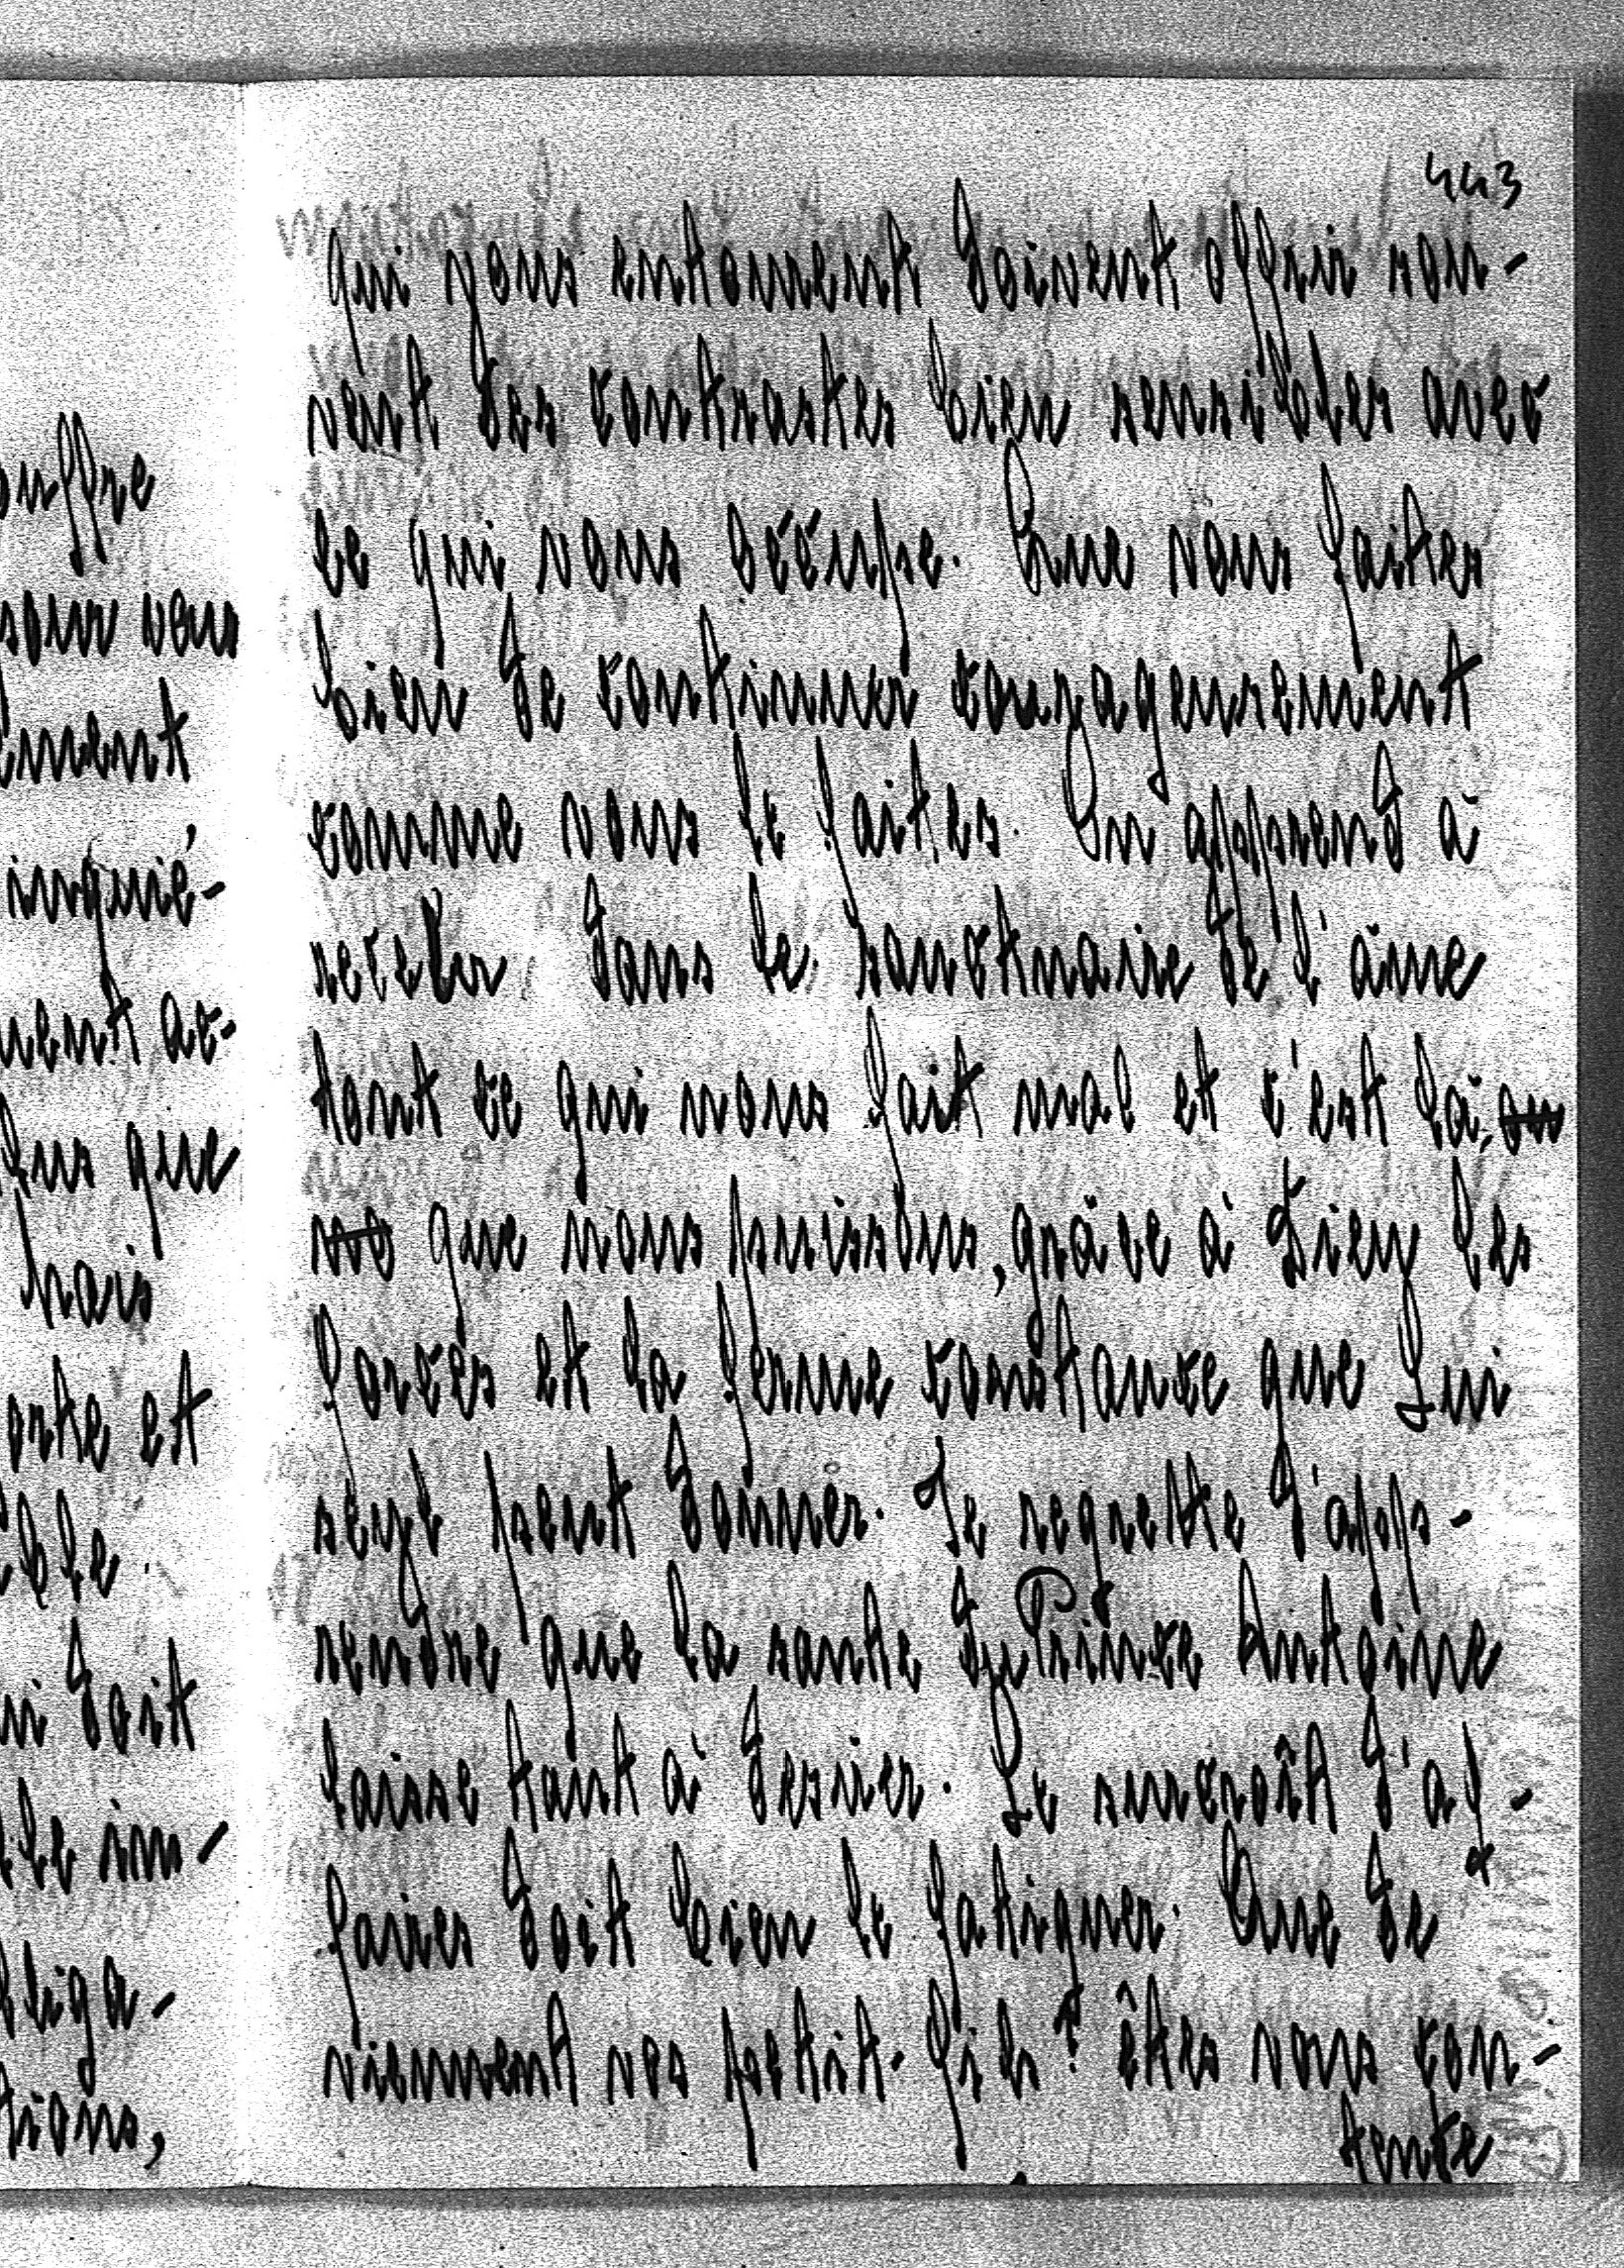 443
qui vous entourent doivent offrir sou-
vent des contrastes bien sensibles avec
ce qui vous occupe. Que vous faites
bien de continuer courageusement
comme vous le faites. On apprend à
receler dans le sanctuaire de l'âme
tout ce qui nous fait mal et c'est là, ou
no que nous puissons, grâce à Dieu les
forces et la ferme constance que Lui
seul peut donner. Je regrette d'app-
rendre que la sante du Prince Antoine
laisse tant à desirer. Le surcroît d'af-
faires doit bien le fatiguer. Que de
viennent vos petit-fils? êtes vous con-
tente
ouffre
pour vous
ement
inquié-
uent ac-
plus que
mais
orte et
ible.
ui doit
lle im-
bliga-
tions,